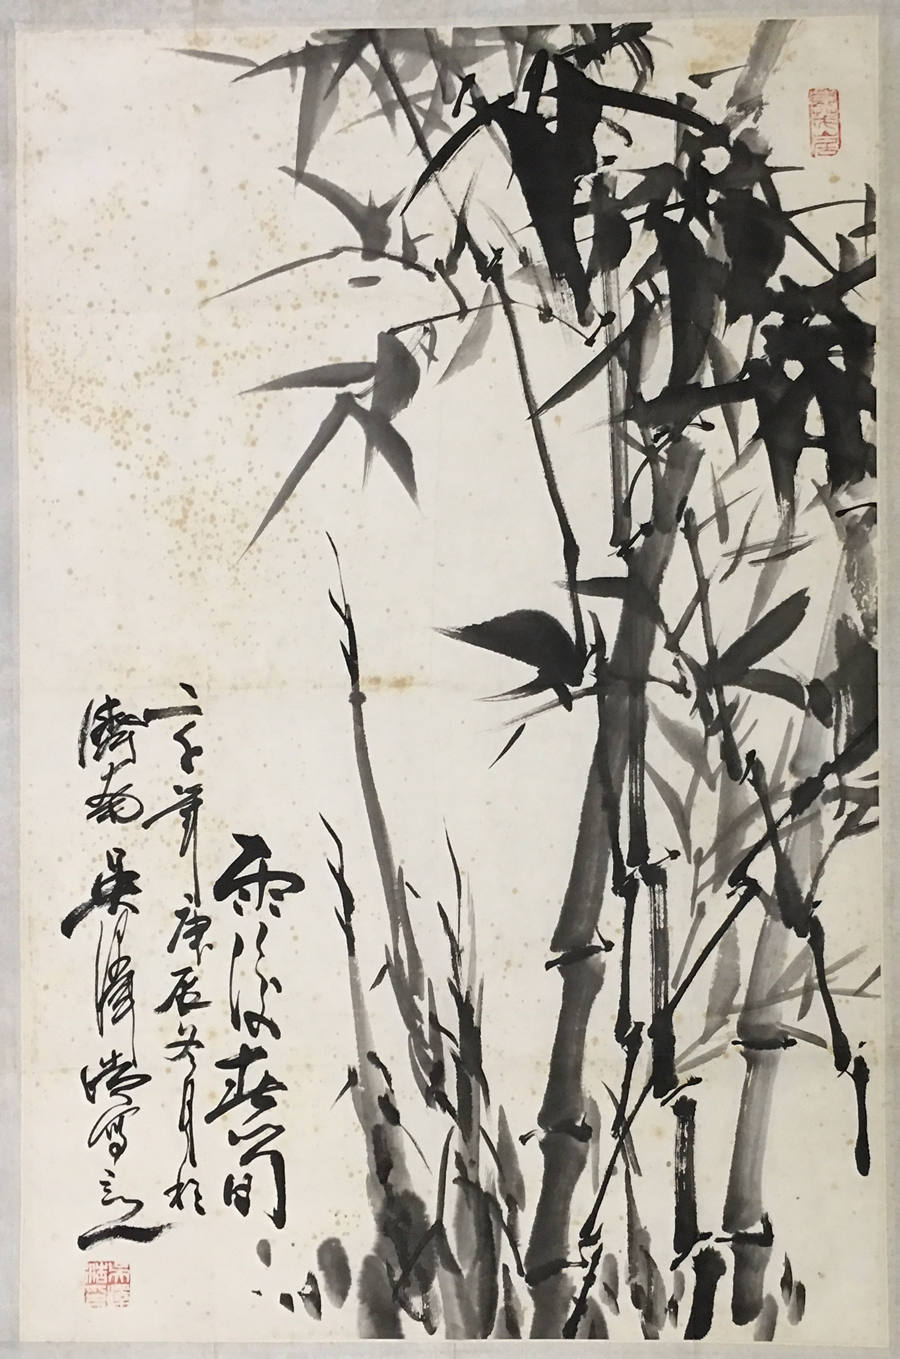 雨後春筍
二千年庚辰冬月於
濟南吳澤浩寫意